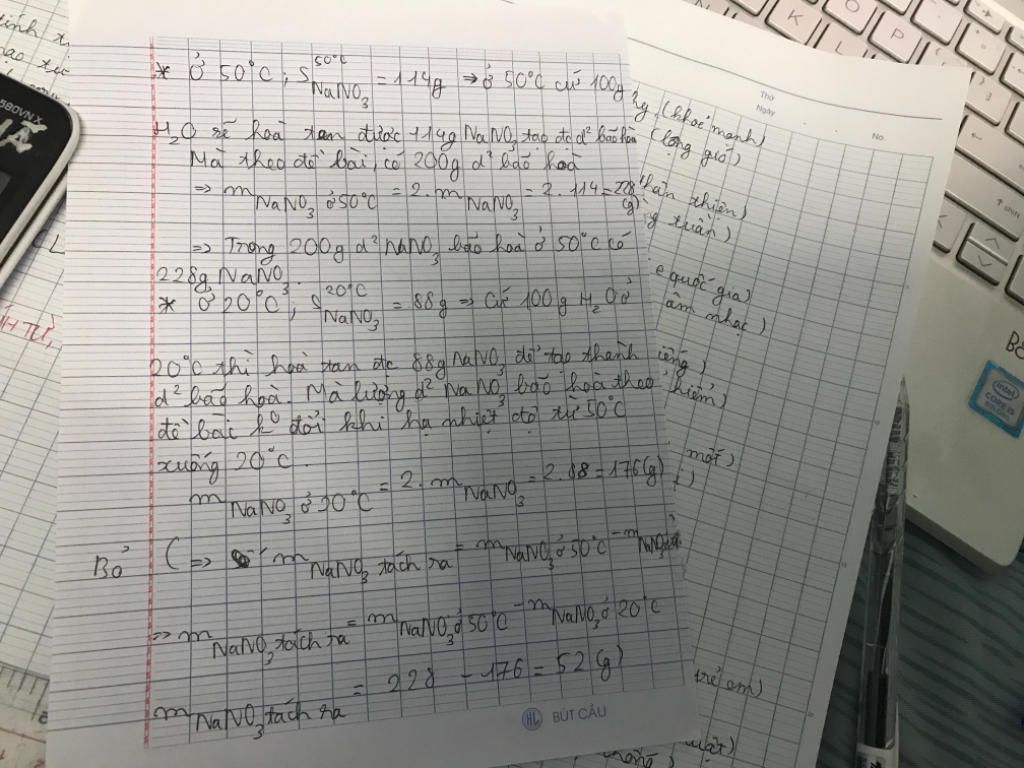 * Ở 50°C, S NaNO₃ 50°C = 114g ⇒ ở 50°C cứ 100g
H₂O sẽ hoà tan được 114g NaNO₃ tạo dd bão hòa
Mà theo đề bài, có 200g d² bão hoà
⇒ m NaNO₃ ở 50°C = 2. m NaNO₃ = 2. 114 = 228
(g)
⇒ Trong 200g d² NaNO₃ bão hoà ở 50°C có
228g NaNO₃.
* Ở 20°C, S NaNO₃ 20°C = 88g ⇒ Cứ 100g H₂O ở
20°C thì hoà tan đc 88g NaNO₃ để tạo thành
d² bão hoà. Mà lượng d² NaNO₃ bão hoà theo
đề bài k° đổi khi hạ nhiệt độ từ 50°C
xuống 20°C.
m NaNO₃ ở 20°C = 2. m NaNO₃ = 2. 88 = 176(g)
Bỏ ( ⇒ m NaNO₃ tách ra = m NaNO₃ ở 50°C - m
⇒ m NaNO₃ tách ra = m NaNO₃ ở 50°C - m NaNO₃ ở 20°C
m NaNO₃ tách ra = 228 - 176 = 52 (g)
HL BÚT CÂU
Thứ
Ngày
No.
(khoẻ mạnh)
(lộng gió)
thiên)
tuần)
quốc gia)
âm nhạc)
hiểm)
một)
trẻ em)
580VNX
intel
CORE i5
K
L
P
shift